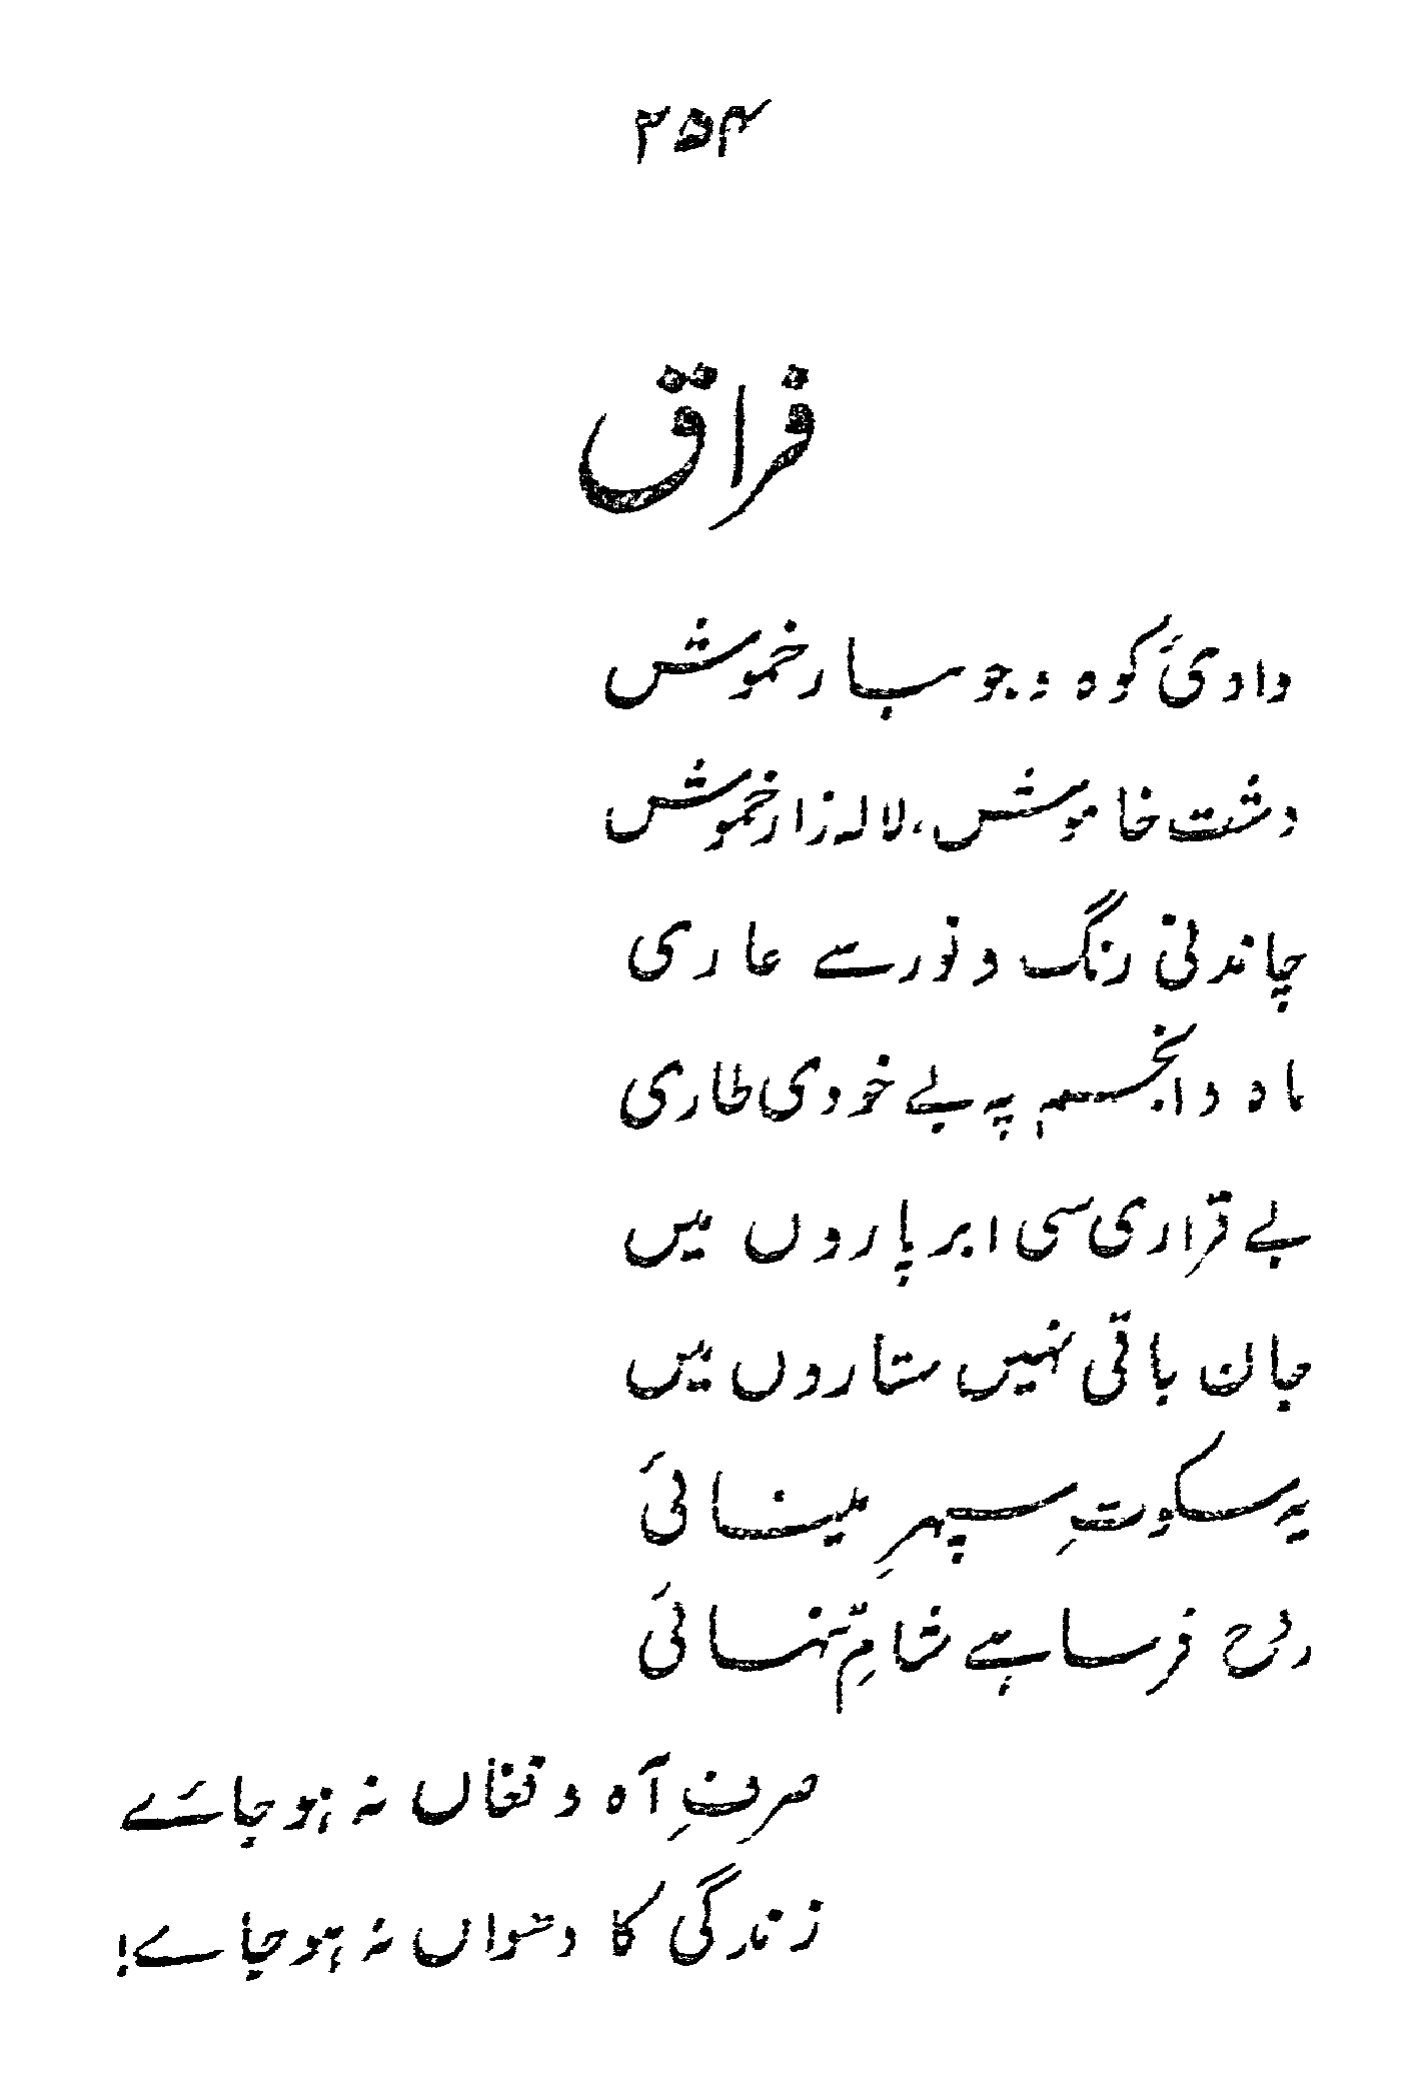 ۲۵۴
فراق
وادیٔ کوہ و جوبسار خموش
دشت خاموش، لالہ زار خموش
چاندنی رنگ و نور سے عاری
ماہ و انجم پہ بے خودی طاری
بے قراری سی ابر پاروں میں
جان باقی نہیں ستاروں میں
یہ سکوتِ سپہرِ مینائی
روح فرسا ہے شامِ تنہائی
صرفِ آہ و فغاں نہ ہو جائے
زندگی کا دھواں نہ ہو جاے!